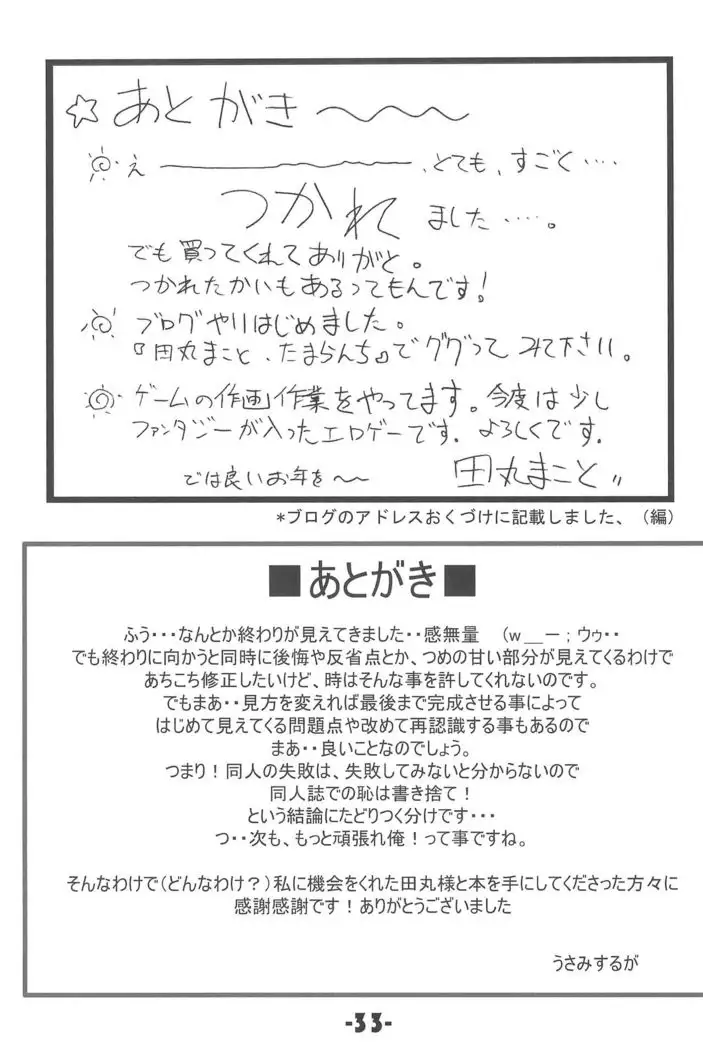 ☆あとがき～～～
え――――――、とても、すごく‥‥
つかれ ました‥‥。
でも買ってくれてありがと。
つかれたかいもあるってもんです!
ブログやりはじめました。
『田丸まこと、たまらんち』でググってみて下さい。
ゲームの作画作業をやってます。今度は少し
ファンタジーが入ったエロゲーです. よろしくです.
では良いお年を～～ 田丸まこと〃
*ブログのアドレスおくづけに記載しました、（編）
■あとがき■
ふう・・・なんとか終わりが見えてきました・・感無量　（w＿ー；ウゥ・・
でも終わりに向かうと同時に後悔や反省点とか、つめの甘い部分が見えてくるわけで
あちこち修正したいけど、時はそんな事を許してくれないのです。
でもまあ・・見方を変えれば最後まで完成させる事によって
はじめて見えてくる問題点や改めて再認識する事もあるので
まあ・・良いことなのでしょう。
つまり！同人の失敗は、失敗してみないと分からないので
同人誌での恥は書き捨て！
という結論にたどりつく分けです・・・
つ・・次も、もっと頑張れ俺！って事ですね。
そんなわけで（どんなわけ？）私に機会をくれた田丸様と本を手にしてくださった方々に
感謝感謝です！ありがとうございました
うさみするが
-33-